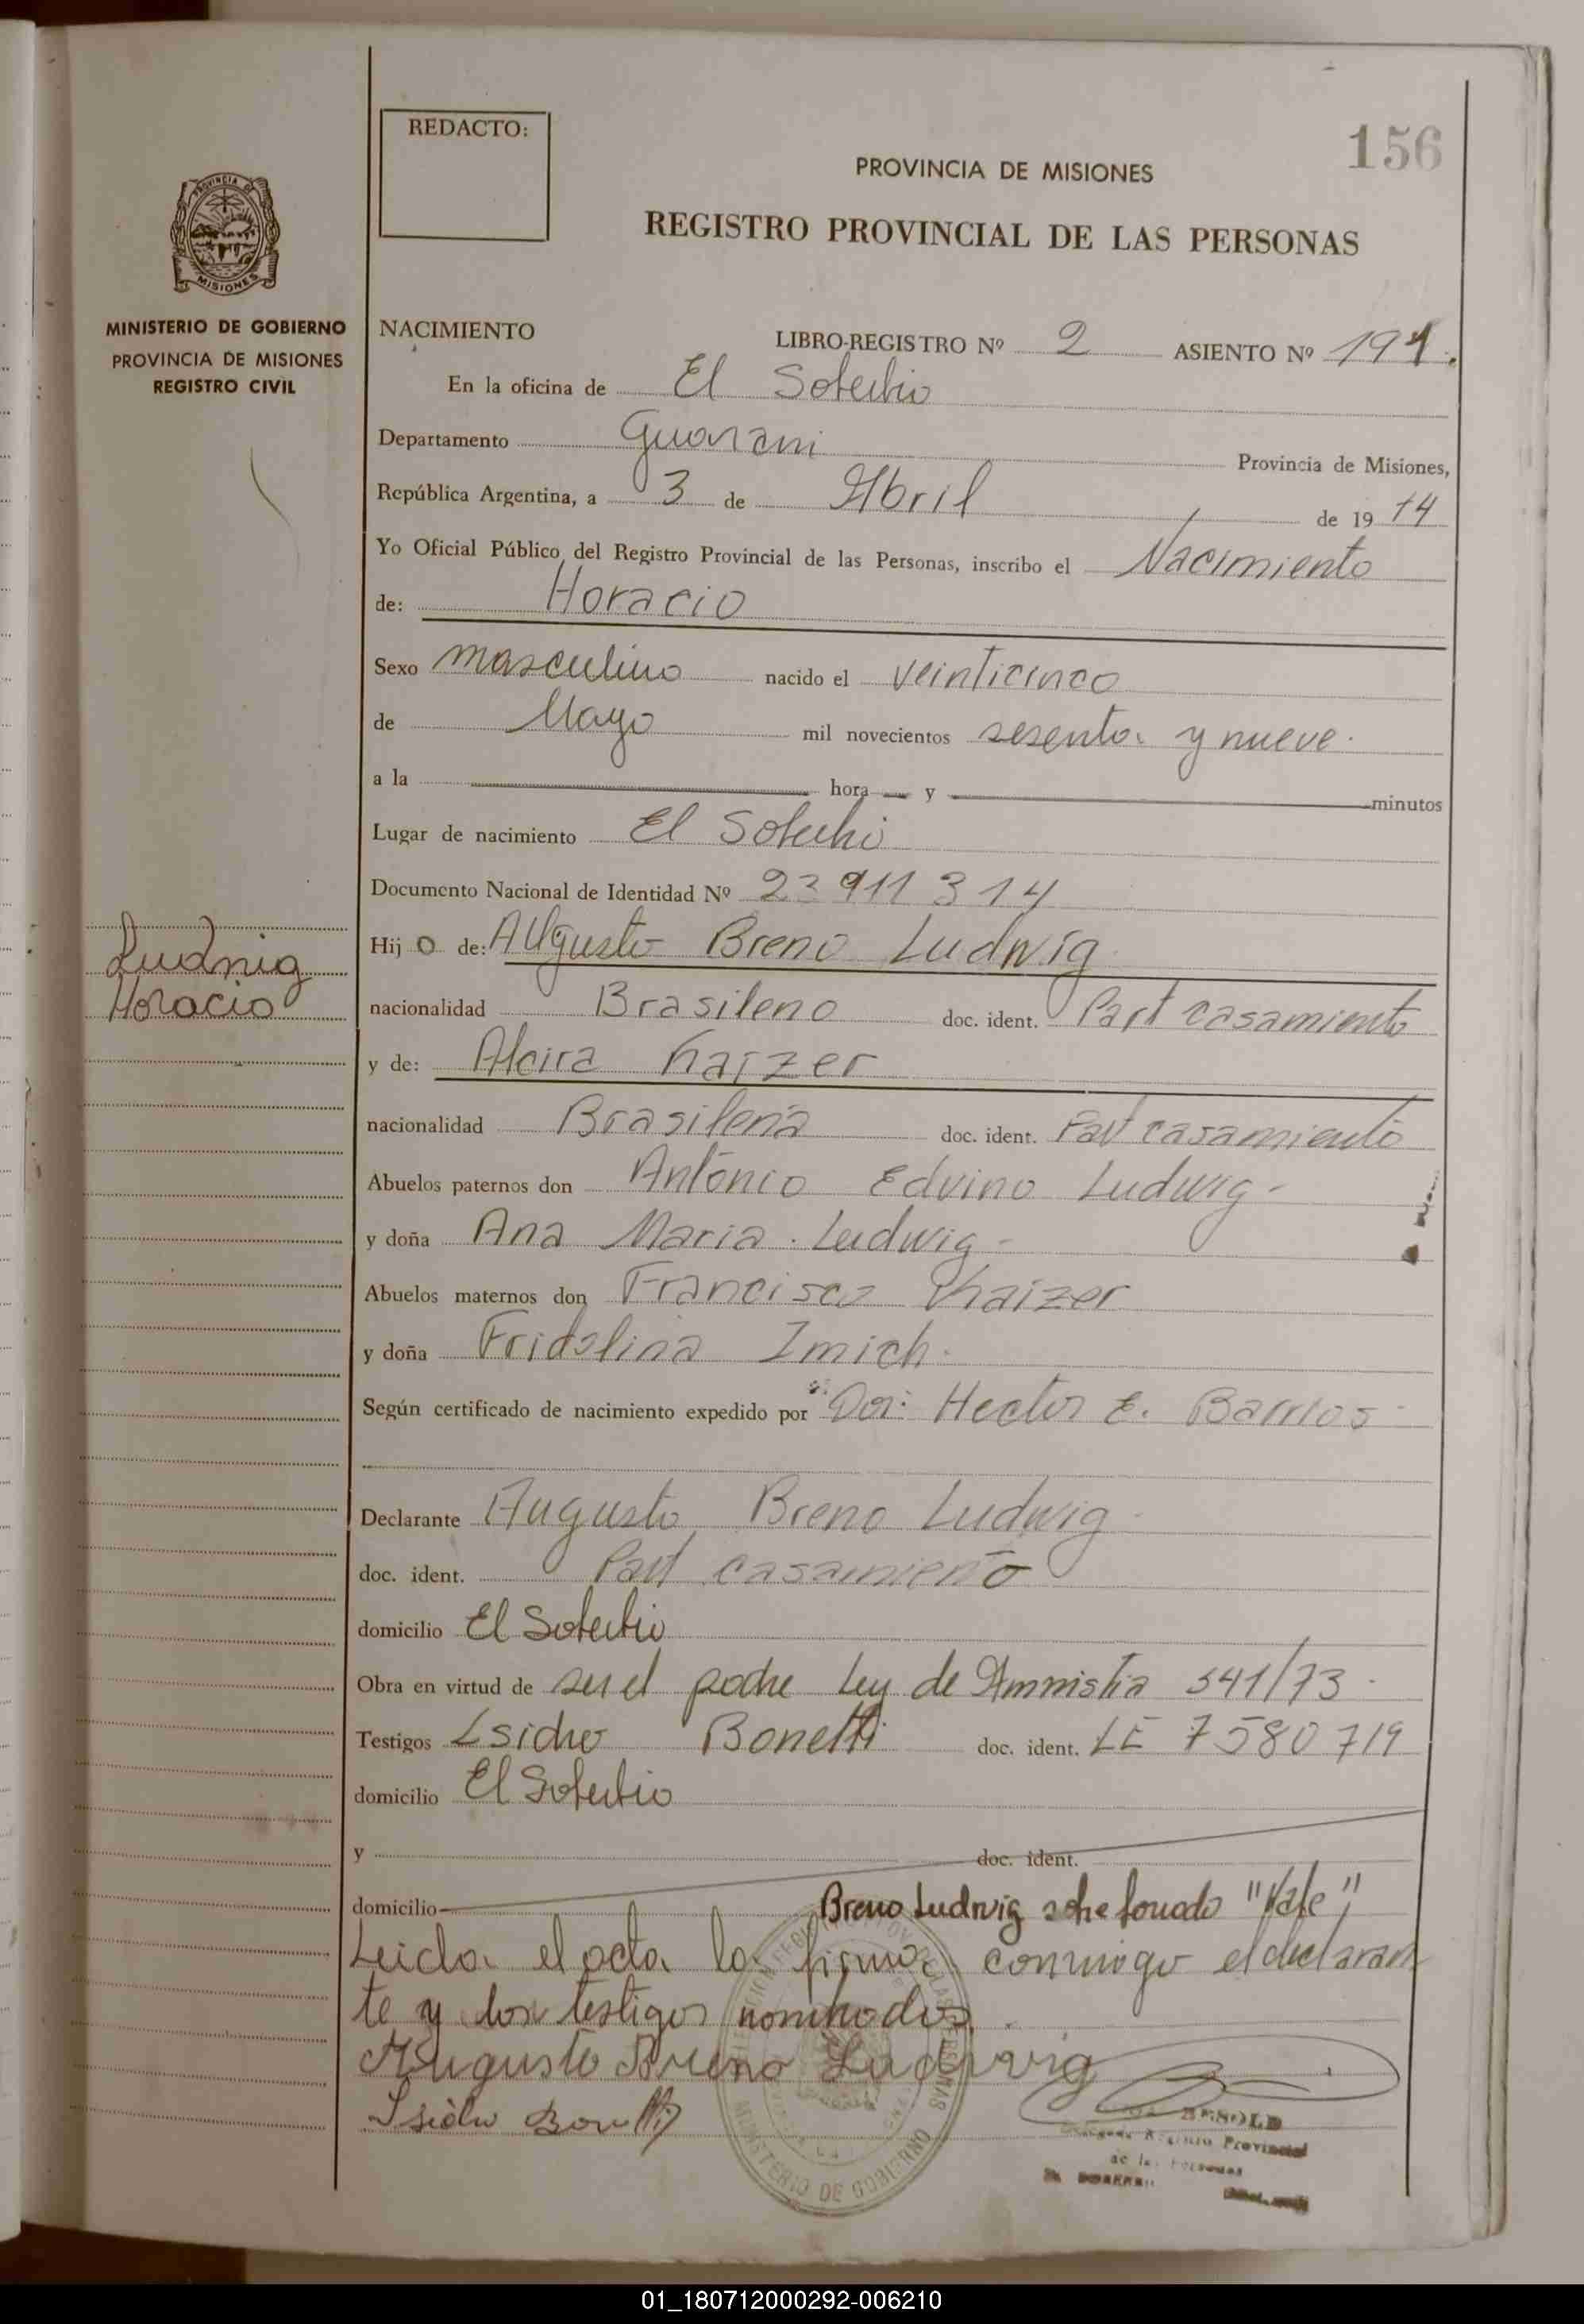 REDACTO:
156
PROVINCIA DE MISIONES
REGISTRO PROVINCIAL DE LAS PERSONAS
PROVINCIA DE
MISIONES
MINISTERIO DE GOBIERNO
PROVINCIA DE MISIONES
REGISTRO CIVIL
NACIMIENTO
LIBRO-REGISTRO Nº 2 ASIENTO Nº 191.
En la oficina de El Soberbio
Departamento Guarani Provincia de Misiones,
República Argentina, a 3 de Abril de 19 74
Yo Oficial Público del Registro Provincial de las Personas, inscribo el Nacimiento
de: Horacio
Sexo masculino nacido el veinticinco
de Mayo mil novecientos sesenta y nueve.
a la hora y minutos
Lugar de nacimiento El Soberbio
Documento Nacional de Identidad Nº 23 911 314
Hij o de: Augusto Breno Ludwig
Ludwig
Horacio
nacionalidad Brasileno doc. ident. Part casamiento
y de: Alcira Kaizer
nacionalidad Brasilena doc. ident. Part casamiento
Abuelos paternos don Antonio Edvino Ludwig -
y doña Ana Maria Ludwig -
Abuelos maternos don Francisco Khaizer
y doña Fridolina Imich.
Según certificado de nacimiento expedido por Dor: Hector E. Barrios
Declarante Augusto Breno Ludwig
doc. ident. Part casamiento
domicilio El Soberbio
Obra en virtud de ser el padre Ley de Amnistia 341/73 -
Testigos Isidro Bonetti doc. ident. LE 7580719
domicilio El Soberbio
y doc. ident.
domicilio Breno Ludwig sobre forrado "Vale"
Leida el acta la firma conmigo el declaran
te y los testigos nombrados.
Augusto Breno Ludwig
Isidro Bonetti
BESOLD
Registro Provincial
de las Personas
MINISTERIO DE GOBIERNO
01_180712000292-006210